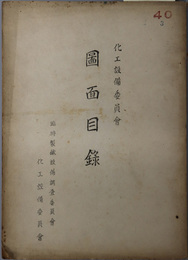 40
化工設備委員會
圖面目錄
臨時製鐵設備調査委員會
化工設備委員會